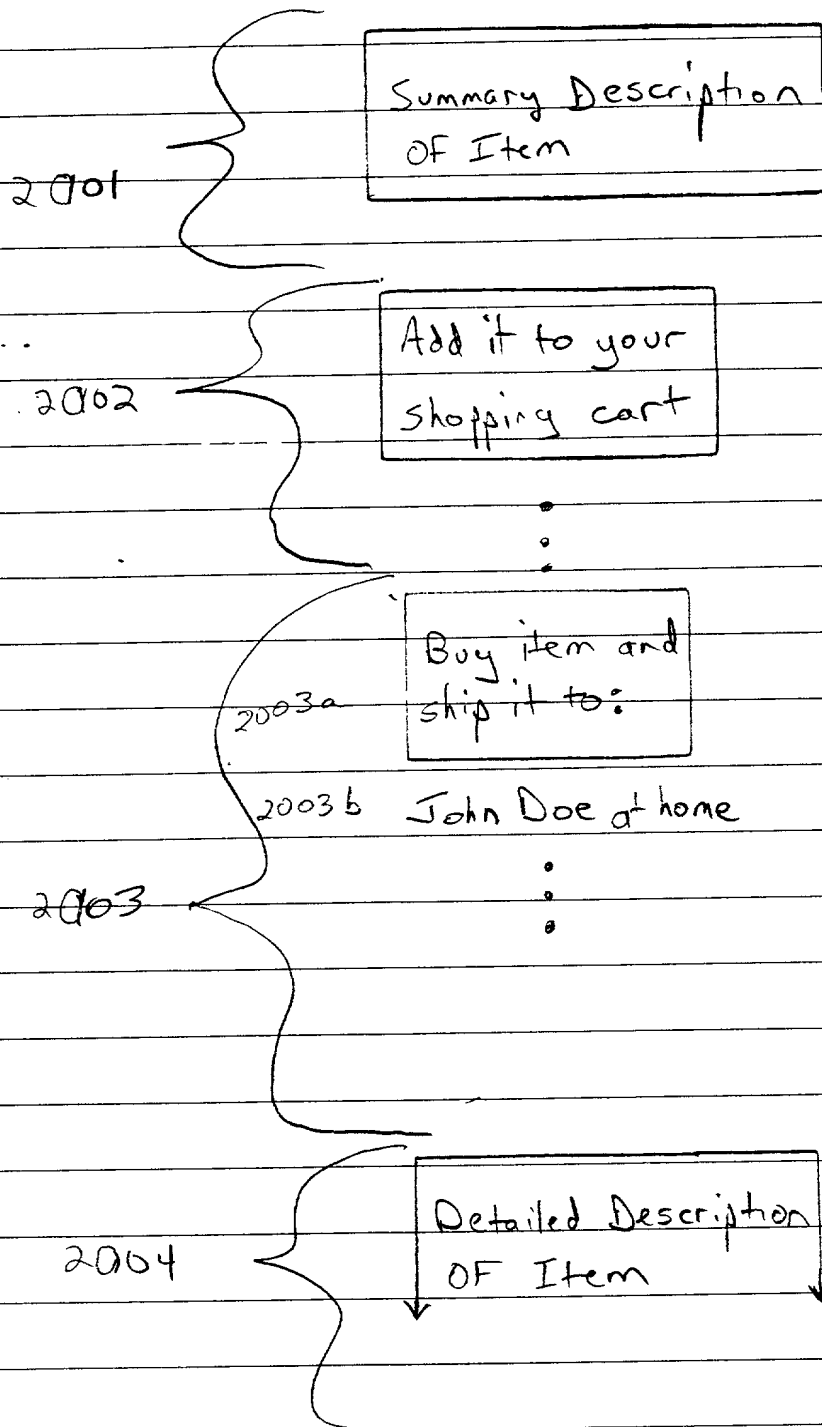 Summary Description
OF Item
2001
Add it to your
shopping cart
2002
Buy item and
ship it to:
2003a
2003b John Doe at home
2003
Detailed Description
OF Item
2004